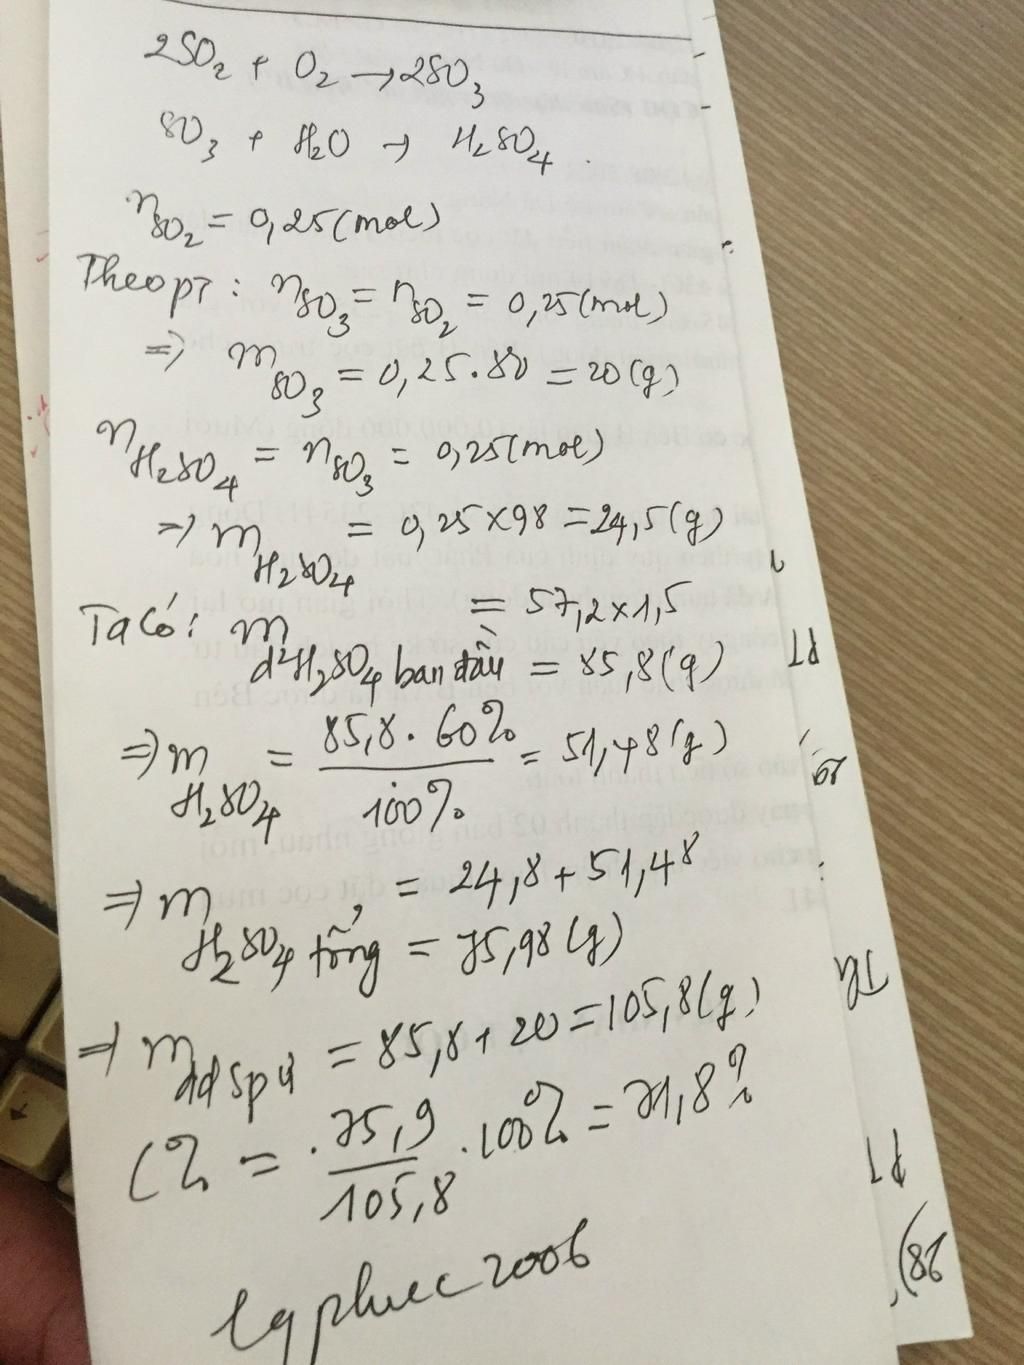 2SO₂ + O₂ → 2SO₃
SO₃ + H₂O → H₂SO₄.
n SO₂ = 0,25 (mol)
Theo pT : n SO₃ = n SO₂ = 0,25 (mol)
=> m SO₃ = 0,25 . 80 = 20 (g)
n H₂SO₄ = n SO₃ = 0,25 (mol)
=> m H₂SO₄ = 0,25 x 98 = 24,5 (g)
Ta có : m d² H₂SO₄ ban đầu = 57,2 x 1,5
= 85,8 (g)
=> m H₂SO₄ = 85,8 . 60% / 100% = 51,48 (g)
=> m H₂SO₄ tổng = 24,8 + 51,48
= 75,98 (g)
=> m dd spứ = 85,8 + 20 = 105,8 (g)
C% = 75,9 / 105,8 . 100% = 71,8%
lgphuc2006
PT
Th
PT
28)